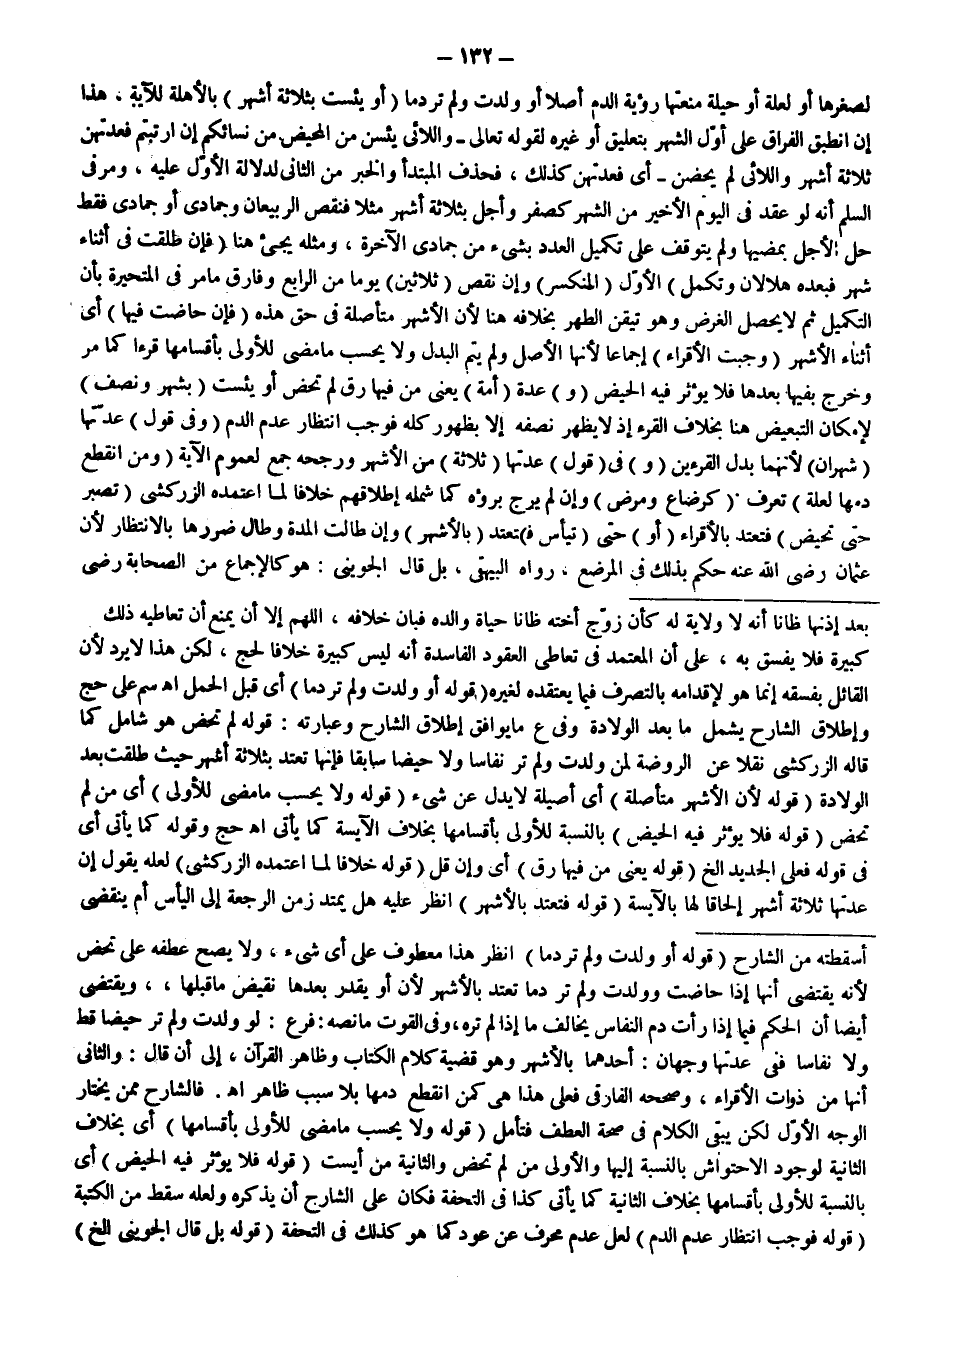 – ١٣٢ –
لصغرها أو لعلة أو حيلة منعتها رؤية الدم أصلا أو ولدت ولم تر دما ( أو يئست بثلاثة أشهر ) بالأهلة للآية ، هذا
إن انطبق الفراق على أوّل الشهر بتعليق أو غيره لقوله تعالى ــ واللائى يئسن من المحيض من نسائكم إن ارتبتم فعدتهن
ثلاثة أشهر واللائى لم يحضن ــ أى فعدتهن كذلك ، فحذف المبتدأ والخبر من الثانى لدلالة الأوّل عليه ، ومر فى
السلم أنه لو عقد فى اليوم الأخير من الشهر كصفر وأجل بثلاثة أشهر مثلا فنقص الربيعان وجمادى أو جمادى فقط
حل الأجل بمضيها ولم يتوقف على تكميل العدد بشىء من جمادى الآخرة ، ومثله يجئ هنا ( فإن طلقت فى أثناء
شهر فبعده هلالان وتكمل ) الأوّل ( المنكسر ) وإن نقص ( ثلاثين ) يوما من الرابع وفارق مامر فى المتحيرة بأن
التكميل ثم لايحصل الغرض وهو تيقن الطهر بخلافه هنا لأن الأشهر متأصلة فى حق هذه ( فإن حاضت فيها ) أى
أثناء الأشهر ( وجبت الأقراء ) إجماعا لأنها الأصل ولم يتم البدل ولا يحسب مامضى للأولى بأقسامها قرءا كما مر
وخرج بفيها بعدها فلا يؤثر فيه الحيض ( و ) عدة ( أمة ) يعنى من فيها رق لم تحض أو يئست ( بشهر ونصف )
لإمكان التبعيض هنا بخلاف القرء إذ لايظهر نصفه إلا بظهور كله فوجب انتظار عدم الدم ( وفى قول ) عدتها
( شهران ) لأنهما بدل القرءين ( و ) فى ( قول ) عدتها ( ثلاثة ) من الأشهر ورجحه جمع لعموم الآية ( ومن انقطع
دمها لعلة ) تعرف ( كرضاع ومرض ) وإن لم يرج برؤه كما شمله إطلاقهم خلافا لما اعتمده الزركشى ( تصبر
حتى تحيض ) فتعتد بالأقراء ( أو ) حتى ( تيأس ف ) تعتد ( بالأشهر ) وإن طالت المدة وطال ضررها بالانتظار لأن
عثمان رضى الله عنه حكم بذلك فى المرضع ، رواه البيهقى ، بل قال الجوينى : هو كالإجماع من الصحابة رضى
بعد إذنها ظانا أنه لا ولاية له كأن زوّج أخته ظانا حياة والده فبان خلافه ، اللهم إلا أن يمنع أن تعاطيه ذلك
كبيرة فلا يفسق به ، على أن المعتمد فى تعاطى العقود الفاسدة أنه ليس كبيرة خلافا لحج ، لكن هذا لايرد لأن
القائل بفسقه إنما هو لإقدامه بالتصرف فيما يعتقده لغيره ( قوله أو ولدت ولم تر دما ) أى قبل الحمل اه سم على حج
وإطلاق الشارح يشمل ما بعد الولادة وفى ع مايوافق إطلاق الشارح وعبارته : قوله لم تحض هو شامل كما
قاله الزركشى نقلا عن الروضة لمن ولدت ولم تر نفاسا ولا حيضا سابقا فإنها تعتد بثلاثة أشهر حيث طلقت بعد
الولادة ( قوله لأن الأشهر متأصلة ) أى أصيلة لايدل عن شىء ( قوله ولا يحسب مامضى للأولى ) أى من لم
تحض ( قوله فلا يؤثر فيه الحيض ) بالنسبة للأولى بأقسامها بخلاف الآيسة كما يأتى اه حج وقوله كما يأتى أى
فى قوله فعلى الجديد الخ ( قوله يعنى من فيها رق ) أى وإن قل ( قوله خلافا لما اعتمده الزركشى ) لعله يقول إن
عدتها ثلاثة أشهر إلحاقا لها بالآيسة ( قوله فتعتد بالأشهر ) انظر عليه هل يمتد زمن الرجعة إلى اليأس أم ينقضى
أسقطته من الشارح ( قوله أو ولدت ولم تر دما ) انظر هذا معطوف على أى شىء ، ولا يصح عطفه على تحض
لأنه يقتضى أنها إذا حاضت وولدت ولم تر دما تعتد بالأشهر لأن أو يقدر بعدها نقيض ماقبلها ، ، ويقتضى
أيضا أن الحكم فيما إذا رأت دم النفاس يخالف ما إذا لم تره ، وفى القوت مانصه : فرع : لو ولدت ولم تر حيضا قط
ولا نفاسا ففى عدتها وجهان : أحدهما بالأشهر وهو قضية كلام الكتاب وظاهر القرآن ، إلى أن قال : والثانى
أنها من ذوات الأقراء ، وصححه الفارقى فعلى هذا هى كمن انقطع دمها بلا سبب ظاهر اه . فالشارح ممن يختار
الوجه الأوّل لكن يبقى الكلام فى صحة العطف فتأمل ( قوله ولا يحسب مامضى للأولى بأقسامها ) أى بخلاف
الثانية لوجود الاحتواش بالنسبة إليها والأولى من لم تحض والثانية من أيست ( قوله فلا يؤثر فيه الحيض ) أى
بالنسبة للأولى بأقسامها بخلاف الثانية كما يأتى كذا فى التحفة فكان على الشارح أن يذكره ولعله سقط من الكتبة
( قوله فوجب انتظار عدم الدم ) لعل عدم محرف عن عود كما هو كذلك فى التحفة ( قوله بل قال الجوينى الخ )